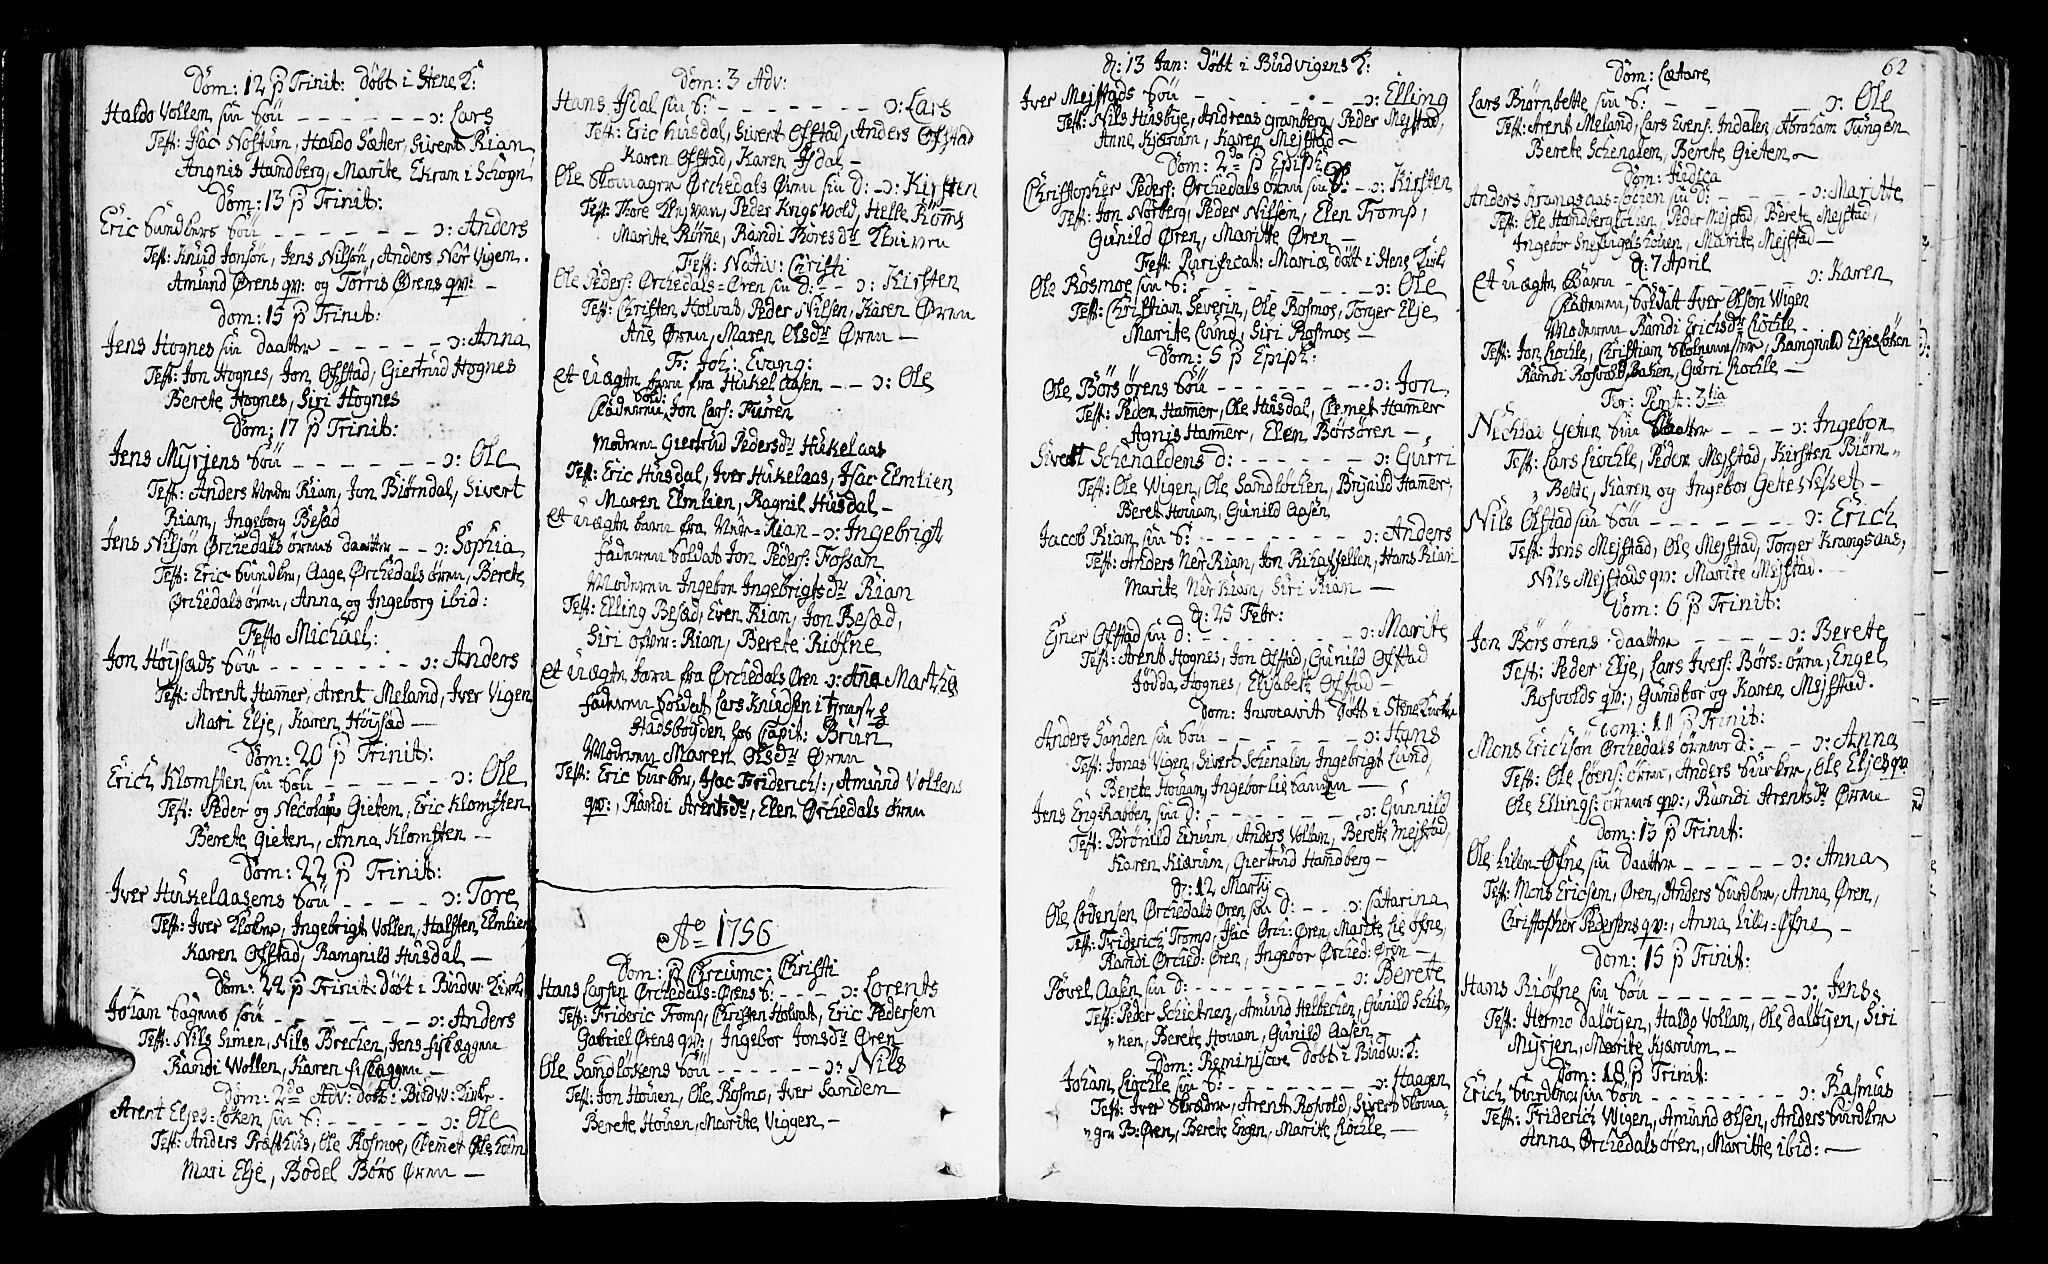 Dom: 12 p Trinit: Döbt i Stene K:
Haldo Vollem sin Sön - - - - - ɔ: Lars
Test: Isac Nostum, Haldo Sæter, Sivert Rian
Angnis Handberg, Marite Ekran i Schögn
Dom: 13 p Trinit:
Eric Sundbers Sön - - - - - - ɔ: Anders
Test: Knud Jonsön, Jens Nilsön, Anders Ner Vigen.
Amund Ørens qv: og Törris Ørens qv: -
dom: 15 p Trinit:
Jens Hognes sin daatter - - - - - ɔ: Anna
Test: Jon Hognes, Jon Ofstad, Giertrud Hognes
Berete Hognes, Siri Hognes
Dom: 17 p Trinit:
Jens Myrjens Sön - - - - - - ɔ: Ole
Test: Anders Rian, Jon Biörndal, Sivert
Rian, Ingeborg Besad
Jens Nilsön Örchedals örens daatter - - ɔ: Sophia
Test: Eric Sundber, Aage Ørchedals ören, Berete
Örchedals ören, Anna og Ingeborg ibid:
Festo Michael:
Jon Höysads Sön - - - - - - ɔ: Anders
Test: Arent Hamer, Arent Meland, Iver Vigen
Mari Elje, Karen Höysad -
Dom: 20 p Trinit:
Erich Klomsten sin Sön - - - - - ɔ: Ole
Test: Peder og Necolay Gieten, Eric Klomsten
Berete Gieten, Anna Klomsten -
Dom: 22 p Trinit:
Iver Hukelaasens Sön - - - - ɔ: Tore
Test: Iver Holm, Ingebrigt Vollen, Halsten Elmlien
Karen Ofstad, Rangnild Husdal -
Dom: 24 p Trinit: Döbt i Budv: Kirke
Johan Sagens sön - - - - - - ɔ: Anders
Test: Nils Simen, Nils Brechen, Jens fiskeggen
Randi Wollen, Karen fiskeggen -
Dom: 2da Adv: döbt: Budv: Kirke -
Arent Eljes=Löken sin S: - - - - - ɔ: Ole
Test: Anders Præsthus, Ole Rosmoe, Clemet
Mari Elje, Bodel Börs Ören -
Dom: 3 Adv:
Hans Isdal sin S: - - - - - - - ɔ: Lars
Test: Eric Husdal, Sivert Ofstad, Anders Ofstad
Karen Ofstad, Karen Isdal -
Ole Skomager Örchedals Ören sin d: - ɔ: Kirsten
Test: Thore, Peder Kngswold, Helle Röms
Marite Röme, Randi Thoresdr
Fest: Nativ: Christi
Ole Peders: Ørchedals=Øren sin d: - - ɔ: Kirsten
Test: Christen Holvat, Peder Nilsen, Karen Øren
Ane Øren, Maren Olsdr Øren -
Fr: Joh: Evang:
Et uægte barn fra Hukelaasen - - ɔ: Ole
Faderen Sold: Jon Lars: Furen
Moderen Giertrud Pedersdr Hukelaas
Test: Eric Husdal, Iver Hukelaas, Isac Elmlien
Maren Elmlien, Ragnil Husdal -
Et uægte barn fra Rian - ɔ: Ingebrigt
Faderen Soldat Jon Peders: Fossam
Moderen Ingebor Ingebrigtsdr Rian
Test: Elling Besad, Even Rian, Jon Besad,
Siri Rian, Berete Riösne
Et uægte barn fra Ørchedals Øren ɔ: Ane Martha
faderen Soldat Lars Knudsen i
Stadsbögden hos Capit: Brun
Moderen Maren Olsdr Øren
Test: Eric Sundber, Isac Friderichs:, Amund Voltens
qv:, Randi Arentsdr, Elen Örchedals ören
@ Ao 1756
Dom: p Circumc: Christi
Hans Larsen Örchedals=Örens S: - - - - ɔ: Lorents
Test: Frideric Tromp, Christen Holvat, Eric Pedersen
Gabriel Ørens qv:, Ingebor Jonsdr Øren
Ole Sandlökens Sön - - - - ɔ: Nils
Test: Jon Houen, Ole Rosmo, Iver Sanden
Berete Houen, Marite Viggen -
d: 13 Jan: döbt i Budvigens K:
Iver Mejstads Sön - - - - - - ɔ: Elling
Test: Nils Husbye, Andreas granberg, Peder Mejstad,
Anne Kjærum, Karen Mejstad -
Dom: 2da p Epiph:
Christopher Peders: Örchedals örens sin D: - ɔ: Kirsten
Test: Jon Norberg, Peder Nilsen, Elen Tromp,
Gunild Øren, Maritte Øren -
Fest: Purificat: Mariæ döbt i Stene Kirke
Ole Rosmoe sin S: - - - - - - - ɔ: Ole
Test: Christian Severin, Ole Rosmoe, Torger Elje
Marite Lund, Siri Rosmoe -
Dom: 5 p Epiph:
Ole Börs örens Sön - - - - - - ɔ: Jon
Test: Peder Hamer, Ole Husdal, Clemet Hamer
Agnis Hamer, Elen Börsören -
Sivert Schenaldens d: - - - - - - ɔ: Gurri
Test: Ole Wigen, Ole Sandlöchen, Brynild Hamer,
Beret Houan, Gunild Aasen
Jacob Rian sin S: - - - - - - - ɔ: Anders
Test: Anders Ner Rian, Jon, Hans Rian
Marite Ner Rian, Siri Rian -
d: 25 Febr:
Ejner Ofstad sin d: - - - - - - ɔ: Marite
Test: Arent Hognes, Jon Ofstad, Gunild Ofstad
Jödda Hognes, Elisabeth Ofstad -
Dom: Invocavit Döbt i Stene Kirke
Anders Sanden sin Sön - - - - - - ɔ: Hans
Test: Jonas Vigen, Sivert Schenalen, Ingebrigt Lund,
Berete Houan, Ingebor -
Jens Engkrabben sin d: - - - - - - ɔ: Gunnild
Test: Brönild Einum, Anders Vollam, Berette Mejstad,
Karen Kiærum, Giertrud Handberg -
d: 12 Martij
Ole Lodensen Örchedals Ören sin d: - - - ɔ: Catarina
Test: Friderich Tromp, Isac Örc: Ören, Marite Lie öfne,
Randi Örched: Ören, Ingebor Örched: Ören -
Povel Aasen sin d: - - - - - - ɔ: Berete
Test: Peder Schietnen, Amund Helbechen, Gunild Schit-
nen, Berete Houan, Gunild Aasen -
Dom: Reminiscere Döbt i Budw: K:
Johan Liochle sin S: - - - - - - ɔ: Haagen
Test: Iver Skræder, Arent Rosvold, Sivert Skoma-
ger B: Øren, Berete Engen, Marite Liochle -
62
Dom: Lætare
Lars Biörnbette sin S: - - - - - - ɔ: Ole
Test: Arent Meland, Lars Evens: Indalen, Abraham Tungen
Berete Schenalen, Berete Gieten -
Dom: Judica
Anders Krangsaas=löchen sin d: - - - - ɔ: Maritte
Test: Ole Handberglöchen, Peder Mejstad, Berete Mejstad,
Ingebor, Marite Mejstad -
d: 7 April
Et uægte Barn - - - - - - ɔ: Karen
Faderen, Soldat Iver Olsön Wigen
Moderen Randi Erichsdr Liochle -
Test: Jon Liochle, Christian, Rangnild Eljeslöken
Randi Rosvold, Gurri Liochle -
Fer: Pent: 3tia
Nicolai Geten sin Daatter - - - - ɔ: Ingebor
Test: Lars Liochle, Peder Mejstad, Kirsten Biörn-
bette, Karen og Ingebor Gete Nesset -
Nils Ofstad sin Sön - - - - - - ɔ: Erich
Test: Jens Mejstad, Ole Mejstad, Torger Krangsaas,
Nils Mejstads qv: Marite Mejstad.
Dom: 6 p Trinit:
Jon Börs örens daatter - - - - - ɔ: Berete
Test: Peder Elje, Lars Ivers: Börs=ören, Engel
Rosvolds qv:, Gundbor og Karen Mejstad.
Dom: 11 p Trinit:
Mons Erichsön Örchedals örens d: - - ɔ: Anna
Test: Ole Sörens: ören, Anders Sundber, Ole Eljes qv:
Ole Ellings: örens qv:, Randi Arentsdr Øren
Dom: 13 p Trinit:
Ole Lille=Øfne sin Daatter - - - - - ɔ: Anna
Test: Mons Ericsen Øren, Anders Sundber, Anna Øren,
Christopher Pedersens qv:, Anna Lille=Øfne -
Dom: 15 p Trinit:
Hans Riösne sin Sön - - - - - - - ɔ: Jens
Test: Hermo Dalöyen, Haldo Vollam, Ole Dalöyen, Siri
Myrjen, Marite Kjærum -
Dom: 18 p Trinit:
Erich Sundbers sin Sön - - - - - - - ɔ: Rasmus
Test: Friderich Wigen, Amund Olsen, Anders Sundber
Anna Örchedals ören, Maritte ibid: -